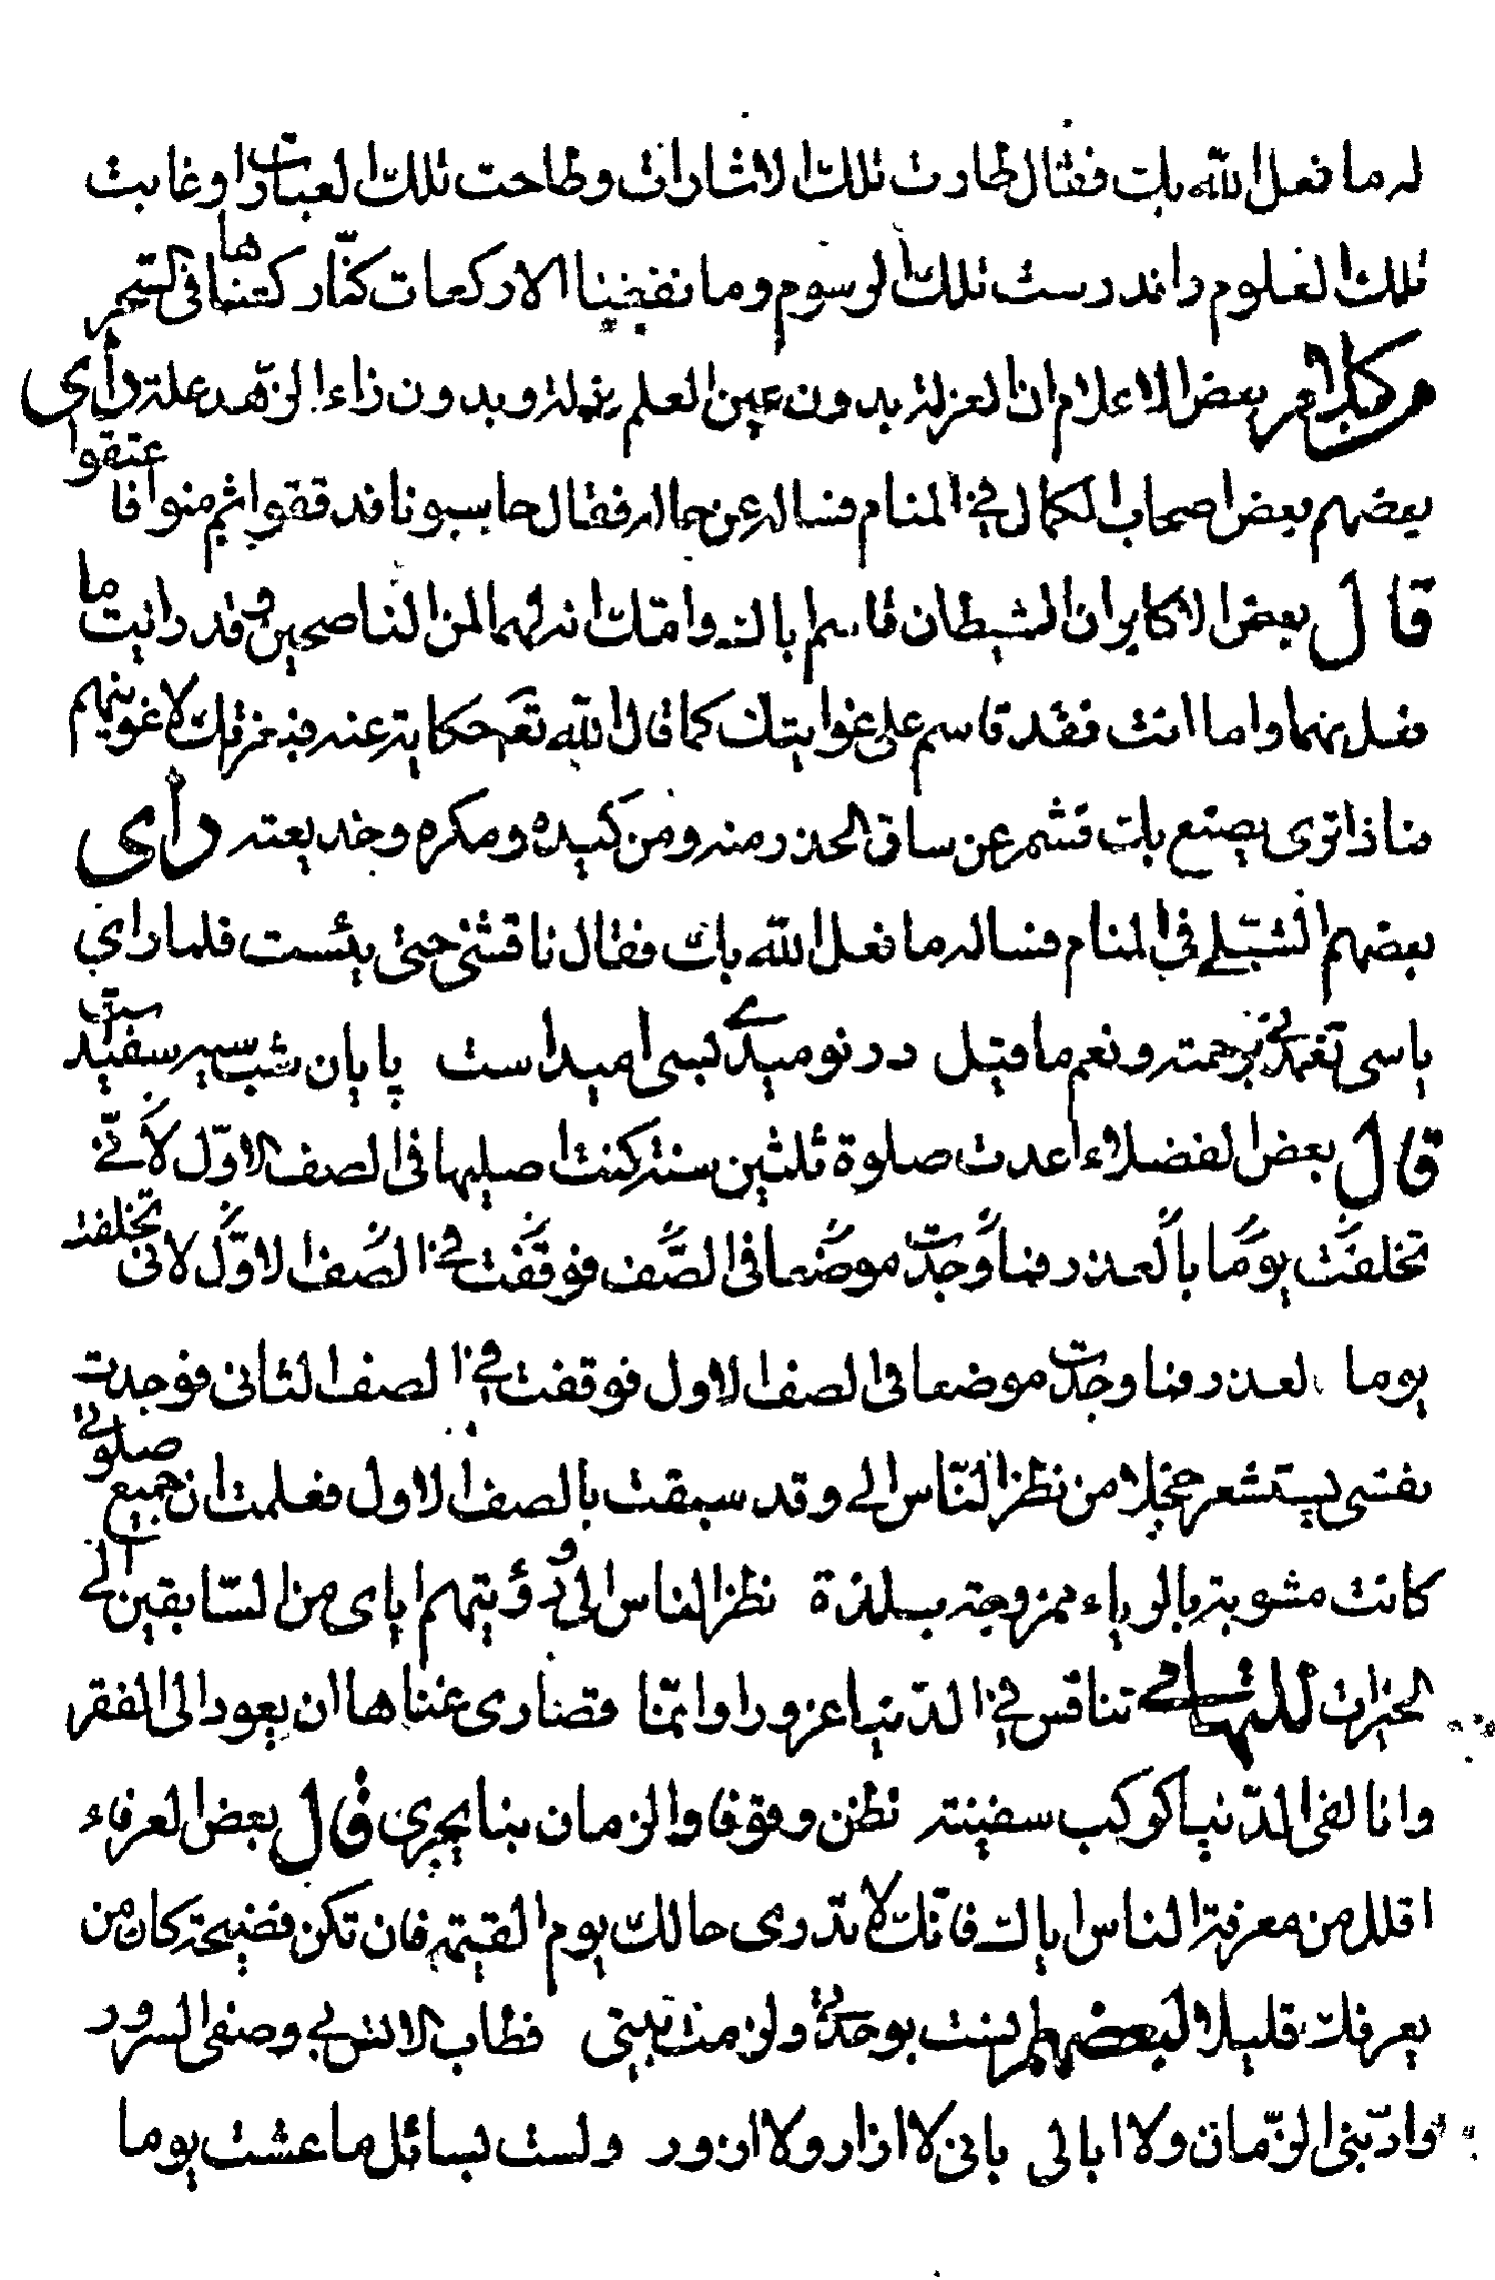 له ما فعل الله بك فقال طارت تلك الاشارات وطاحت تلك العبارات وغابت
تلك العلوم واندرست تلك الرسوم وما نفعنا الا ركعات كنّا ركعناها فى السّحر
من كلام بعض الاعلام ان العزلة بدون عين العلم زلة وبدون زاء الزّهد علة رأى
بعضهم بعض اصحاب الكمال فى المنام فساله عن حاله فقال حاسبونا فدققوا ثم منوا فاعتقوا
قال بعض الاكابر ان الشيطان قاسم اباك وامّك انه لهما لمن الناصحين وقد رايت ما
فعل بهما واما انت فقد قاسم على غوايتك كما قال الله تعم حكاية عنه فبعزتك لاغوينهم
فما ذا ترى يصنع بك فشمر عن ساق الحذر منه ومن كيده ومكره وخديعته رأى
بعضهم الشبلى فى المنام فساله ما فعل الله بك فقال ناقشنى حتى يئست فلما راى
ياسى تغمدنى برحمته ونعم ما قيل در نوميدى بسى اميد است پايان شب سيه سفيد است
قال بعض الفضلاء اعدت صلوة ثلثين سنة كنت اصليها فى الصف الاوّل لانّى
تخلفت يوما بالعذر فما وجدت موضعا فى الصّف فوقفت فى الصف الاوّل لانى تخلفت
يوما لعذر فما وجدت موضعا فى الصف الاول فوقفت فى الصف الثانى فوجدت
نفسى يستشعر خجلا من نظر النّاس الى وقد سبقت بالصف الاول فعلمت ان جميع صلوتى
كانت مشوبة بالرياء ممزوجة بلذة نظر الناس الى ورؤيتهم اياى من السّابقين الى
الخيرات للتهامى تنافس فى الدّنيا غرورا وانمّا قصارى غناها ان يعود الى الفقر
وانا لفى الدّنيا كركب سفينة نظن وقوفا والزمان بنا يجرى قال بعض العرفاء
اقلل من معرفة الناس اياك فانّك لا تدرى حالك يوم القيمة فان تكن فضيحة كان من
يعرفك قليلا لبعضهم انست بوحدتى ولزمت بيتى فطاب الانس بى وصفى السرور
وادّبنى الزّمان ولا ابالى بانى لا ازار ولا ازور ولست بسائل ما عشت يوما